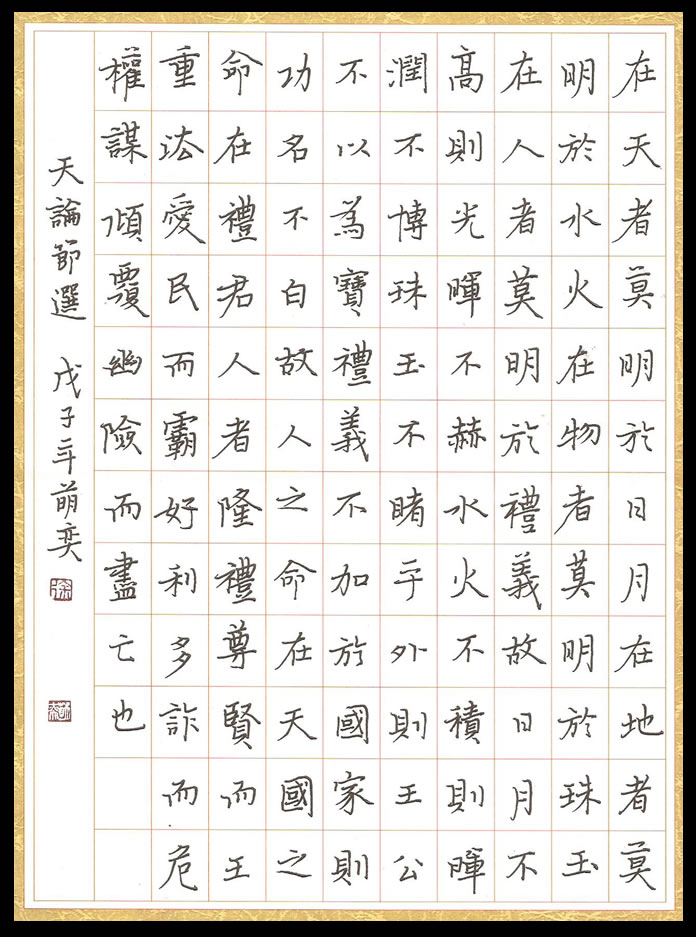 在天者莫明於日月在地者莫
明於水火在物者莫明於珠玉
在人者莫明於禮義故日月不
高則光暉不赫水火不積則暉
潤不博珠玉不睹乎外則王公
不以為寶禮義不加於國家則
功名不白故人之命在天國之
命在禮君人者隆禮尊賢而王
重法愛民而霸好利多詐而危
權謀傾覆幽險而盡亡也
天論節選 戊子年萌奕